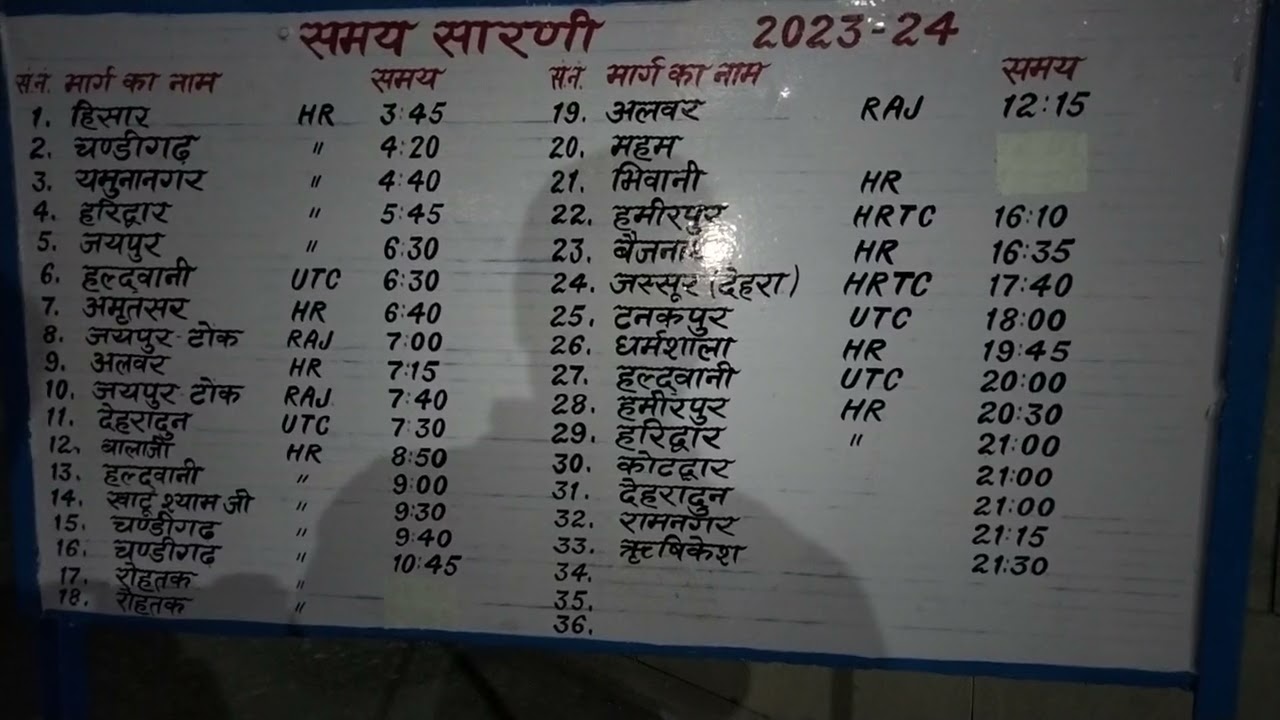 समय सारणी 2023-24
स.नं. मार्ग का नाम समय
1. हिसार HR 3:45
2. चण्डीगढ़ " 4:20
3. यमुनानगर " 4:40
4. हरिद्वार " 5:45
5. जयपुर " 6:30
6. हल्द्वानी UTC 6:30
7. अमृतसर HR 6:40
8. जयपुर-टोक RAJ 7:00
9. अलवर HR 7:15
10. जयपुर-टोक RAJ. 7:40
11. देहरादुन UTC 7:30
12. बालाजी HR 8:50
13. हल्द्वानी " 9:00
14. खाटू श्याम जी " 9:30
15. चण्डीगढ " 9:40
16. चण्डीगढ़ " 10:45
17. रोहतक "
18. रोहतक "
स.नं. मार्ग का नाम समय
19. अलवर RAJ 12:15
20. महम
21. भिवानी HR
22. हमीरपुर HRTC 16:10
23. HR 16:35
24. जस्सूर (देहरा) HRTC 17:40
25. टनकपुर UTC 18:00
26. धर्मशाला HR 19:45
27. हल्द्वानी UTC 20:00
28. हमीरपुर HR 20:30
29. हरिद्वार " 21:00
30. कोटद्वार 21:00
31. देहरादुन 21:00
32. रामनगर 21:15
33. ऋषिकेश 21:30
34.
35.
36.